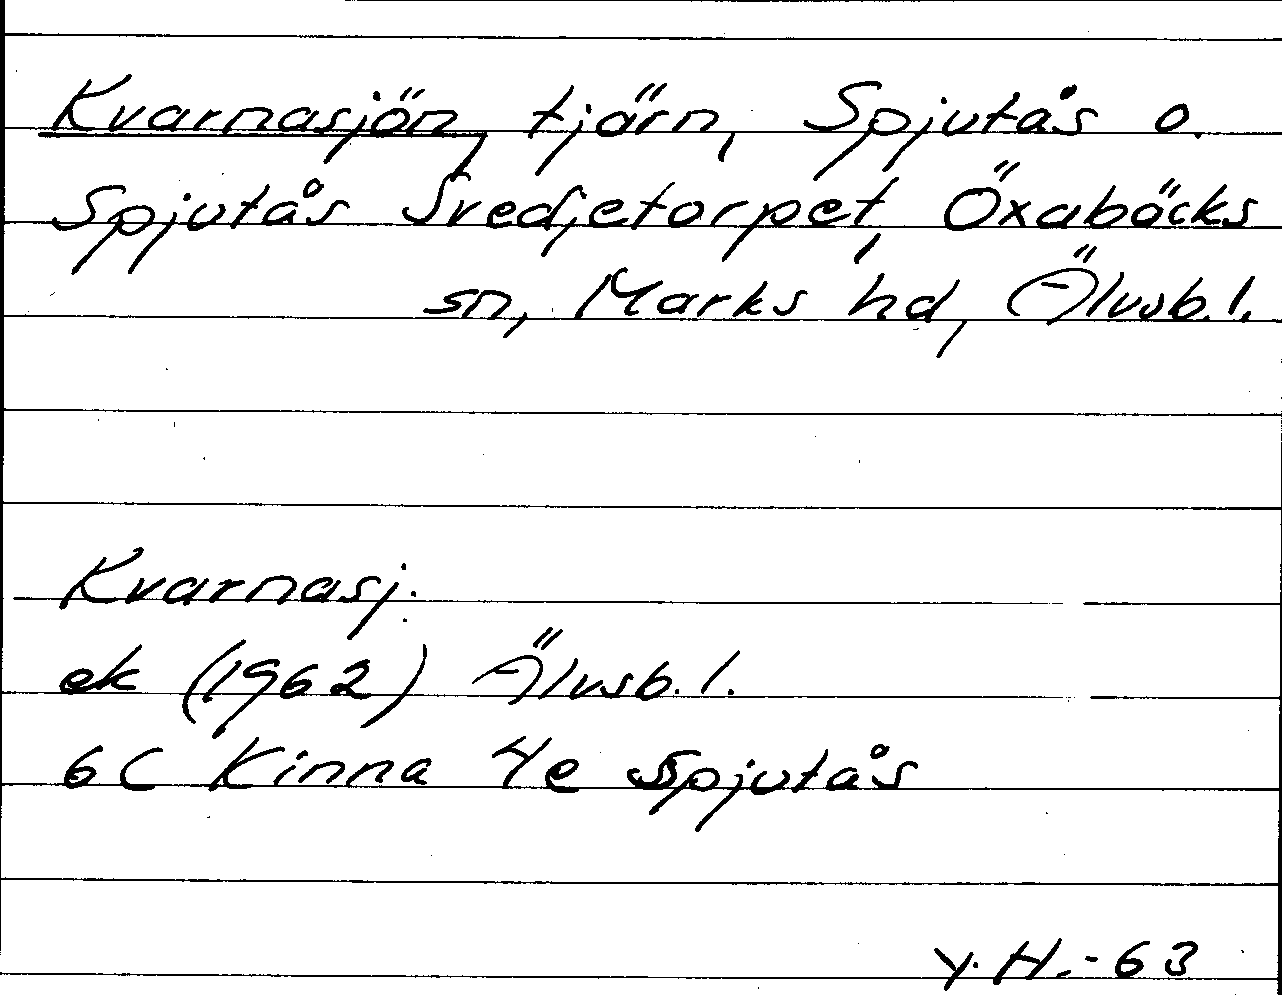 Kvarnasjön, tjärn, Spjutås o.
Spjutås Svedjetorpet, Öxabäcks
sn, Marks hd, Älvsb.l.
Kvarnasj.
ek (1962) Älvsb.l.
6C Kinna 4e Spjutås
Y.H.-63